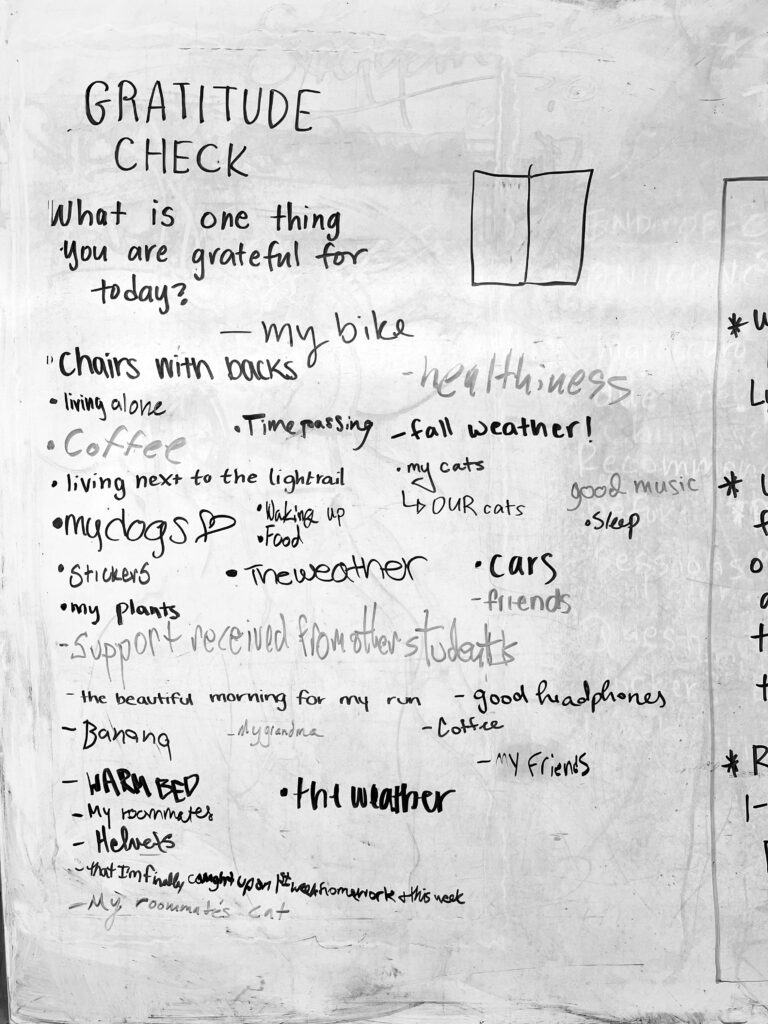 GRATITUDE
CHECK
"What is one thing
you are grateful for
today?
– my bike
"Chairs with backs
- healthiness
• living alone
• Time passing
- fall weather!
• Coffee
• my cats
↳ OUR cats
• living next to the lightrail
good music
• Sleep
• my dogs ♡
• Waking up
• Food
• Stickers
• The weather
• cars
- friends
• my plants
- Support received from other students
- the beautiful morning for my run
- good headphones
- Banana
- My grandma
- Coffee
- MY Friends
- WARM BED
• the weather
- My roommates
- Helmets
- that I'm finally caught up on 1st week homework & this week
- My roommate's cat
*
*
* R
1-